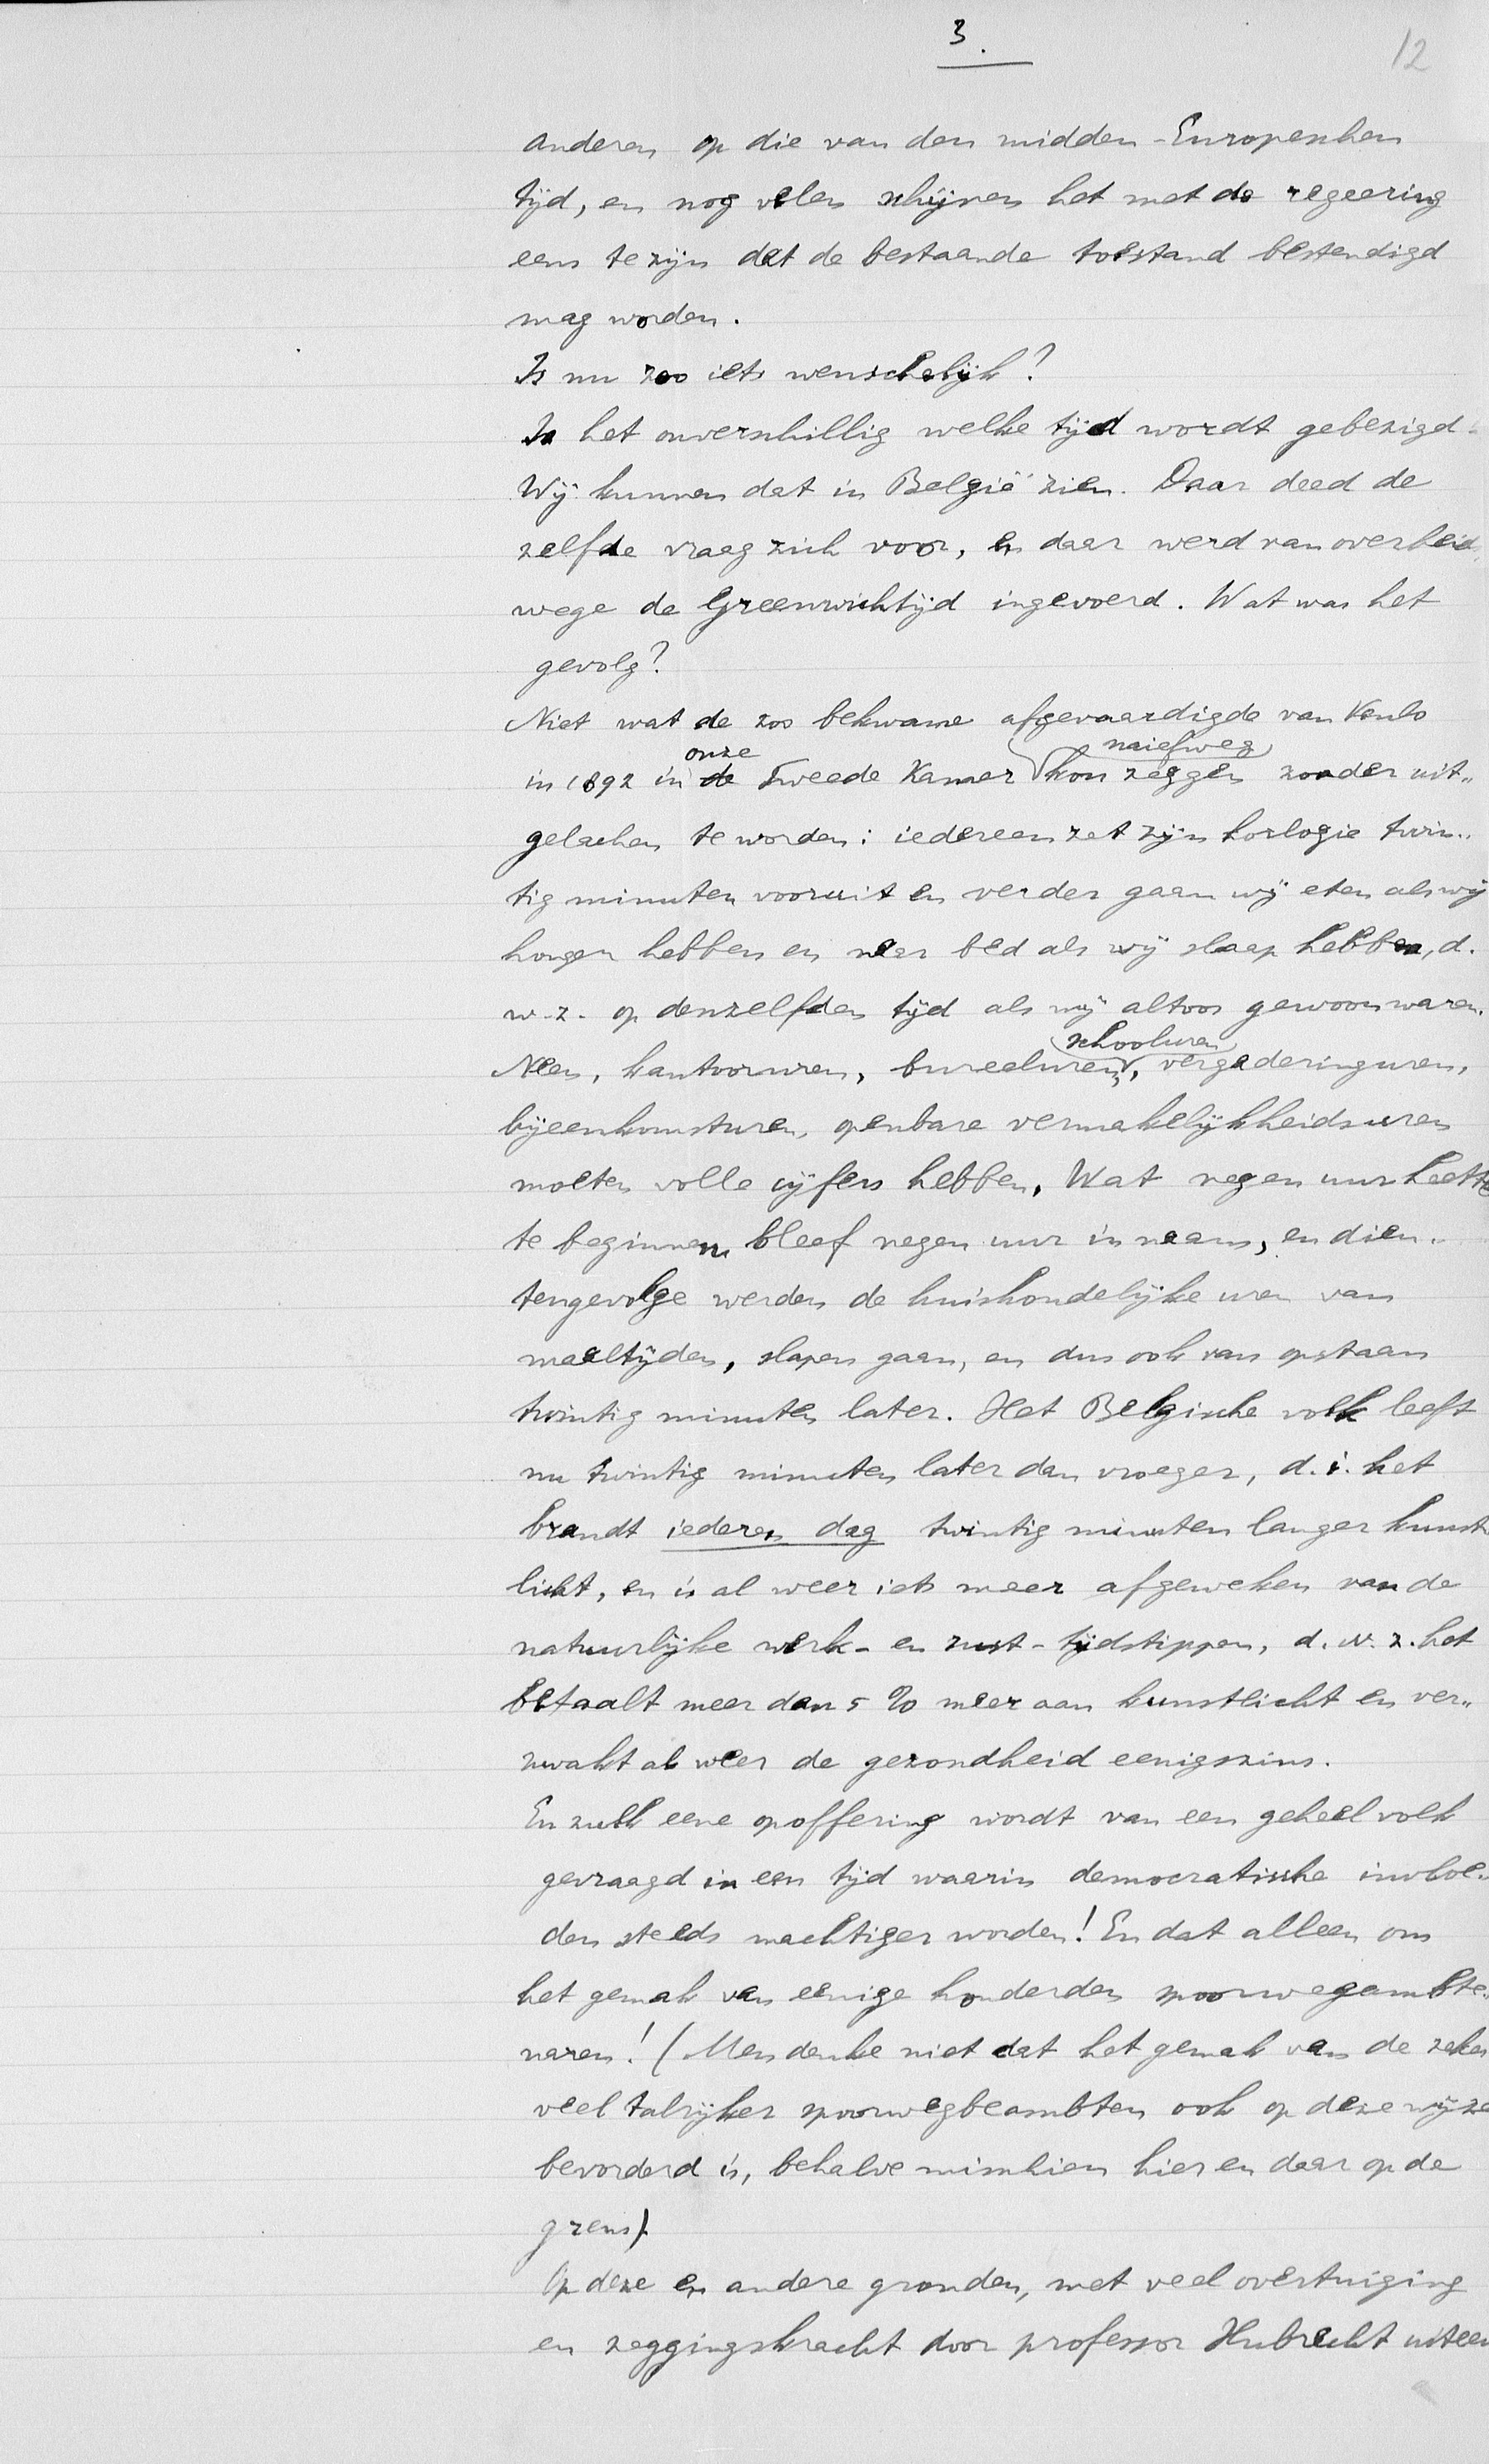 3.
12
anderen op die van den midden-Europeschen
tijd, en nog velen schijnen het met de regeering
eens te zijn dat de bestaande toestand bestendigd
mag worden.
Is nu zoo iets wenschelijk?
Is het onverschillig welke tijd wordt gebezigd-
Wij kunnen dat in België zien. Daar deed de
zelfde vraag zich voor, en daar werd van overheids
wege de Greenwichtijd ingevoerd. Wat was het
gevolg?
Niet wat de zoo bekwame afgevaardigde van Venlo
onze naiefweg
in 1892 in de Tweede Kamer kon zeggen zonder uit-
gelachen te worden: iedereen zet zijn horlogie twin-
tig minuten vooruit en verder gaan wij eten als wij
honger hebben en naar bed als wij slaap hebben, d.
w.z. op denzelfden tijd als wij altoos gewoon waren.
schooluren
Neen, kantooruren, bureeluren, vergaderinguren,
bijeenkomsturen, openbare vermakelijkheidsuren
moeten volle cijfers hebben. Wat negen uur heette
te beginnen bleef negen uur in naam, en dien-
tengevolge werden de huishoudelijke uren van
maaltijden, slapen gaan, en dus ook van opstaan
twintig minuten later. Het Belgische volk leeft
nu twintig minuten later dan vroeger, d.i. het
brandt iederen dag twintig minuten langer kunst
licht, en is al weer iets meer afgeweken van de
natuurlijke werk- en rust-tijdstippen, d.w.z. het
betaalt meer dan 5 % meer aan kunstlicht en ver-
zwakt al weer de gezondheid eenigszins.
En zulk eene opoffering wordt van een geheel volk
gevraagd in een tijd waarin democratische invloe-
den steeds machtiger worden! En dat alleen om
het gemak van eenige honderden spoorwegambte-
naren! (Men denke niet dat het gemak van de zeker
veel talrijker spoorwegbeambten ook op deze wijze
bevorderd is, behalve misschien hier en daar op de
grens).
Op deze en andere gronden, met veel overtuiging
en zeggingskracht door professor Hubrecht uiteen